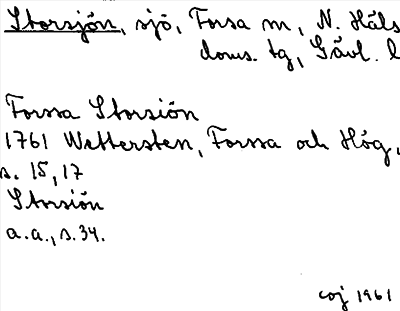 Storsjön, sjö, Forsa sn, N. Häls
doms. tg, Gävl. l
Forssa Storsiön
1761 Wettersten, Forssa och Hög,
s. 15, 17
Storsiön
a.a., s. 34.
coj 1961